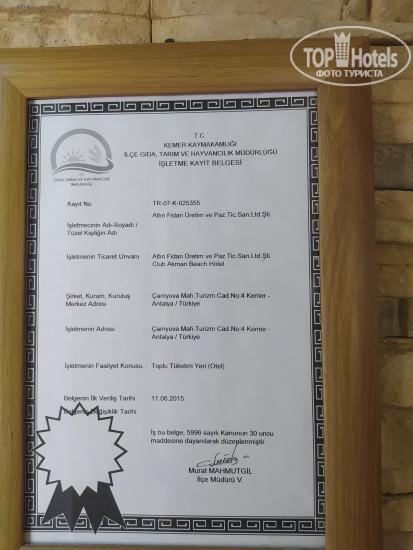 TOP Hotels
ФОТО ТУРИСТА
T.C.
KEMER KAYMAKAMLIĞI
İLÇE GIDA, TARIM VE HAYVANCILIK MÜDÜRLÜĞÜ
İŞLETME KAYIT BELGESİ
T.C.
GIDA TARIM VE HAYVANCILIK
BAKANLIĞI
Kayıt No : TR-07-K-025355
İşletmecinin Adı-Soyadı / Tüzel Kişiliğin Adı : Altın Fidan Üretim ve Paz.Tic.San.Ltd.Şti.
İşletmenin Ticaret Unvanı : Altın Fidan Üretim ve Paz.Tic.San.Ltd.Şti.
Club Akman Beach Hotel
Şirket, Kurum, Kuruluş : Çamyuva Mah.Turizm Cad.No:4 Kemer -
Merkez Adresi Antalya / Türkiye
İşletmenin Adresi : Çamyuva Mah.Turizm Cad.No:4 Kemer -
Antalya / Türkiye
İşletmenin Faaliyet Konusu : Toplu Tüketim Yeri (Otel)
Belgenin İlk Veriliş Tarihi : 11.06.2015
Belgenin Değişiklik Tarihi :
İş bu belge, 5996 sayılı Kanunun 30 uncu
maddesine dayanılarak düzenlenmiştir.
Murat MAHMUTGİL
İlçe Müdürü V.